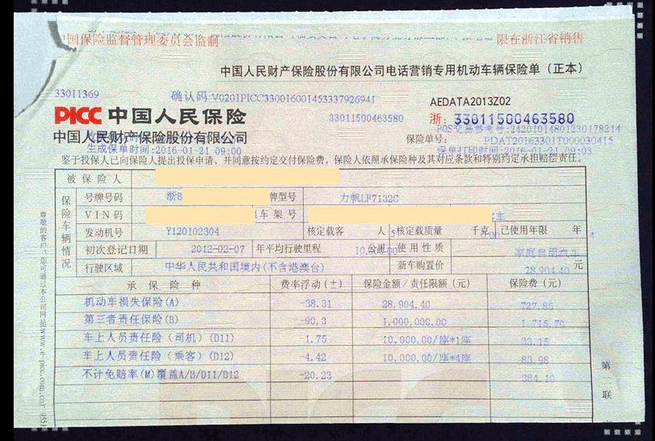 中国保险监督管理委员会监制
限在浙江省销售
中国人民财产保险股份有限公司电话营销专用机动车辆保险单（正本）
33011369
确认码:V0201PICC330016001453379269​41
AEDATA2013Z02
PICC 中国人民保险
33011500463580
浙: 33011500463580
POS交易参考号:2420101480123017821​4
中国人民财产保险股份有限公司
保险单号: PDAT20163301T000030415
生成保单时间:2016-01-21 09:00
保单打印时间:2016-01-21 09:00
鉴于投保人已向保险人提出投保申请，并同意按约定交付保险费，保险人依照承保险种及其对应条款和特别约定承担赔偿责任。
保险车辆情况
被保险人
号牌号码 浙B 牌型号 力帆LF7132C
VIN码 车架号
发动机号 Y120102304 核定载客 人 5 核定载质量 千克 已使用年限 年
初次登记日期 2012-02-07 年平均行驶里程 公里 使用性质 家庭自用汽车
行驶区域 中华人民共和国境内(不含港澳台) 新车购置价 28,904.40 元
承保险种 费率浮动(±) 保险金额/责任限额(元) 保险费(元)
机动车损失保险(A) -38.31 28,904.40 727.86
第三者责任保险(B) -90.3 1,000,000.00 1,715.70
车上人员责任险（司机）(D11) -1.75 10,000.00/座*1座 33.15
车上人员责任险（乘客）(D12) -4.42 10,000.00/座*4座 83.98
不计免赔率(M)覆盖A/B/D11/D12 -20.23 384.10
第一联